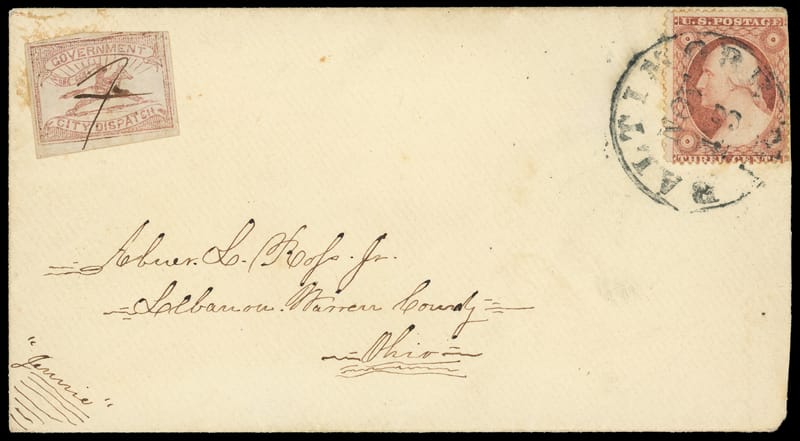 GOVERNMENT
CITY DISPATCH
U.S. POSTAGE
THREE CENTS
BALTIMORE
NOV
Abner. L. Ross. Jr.
Lebanon. Warren County
Ohio
"Jennie"